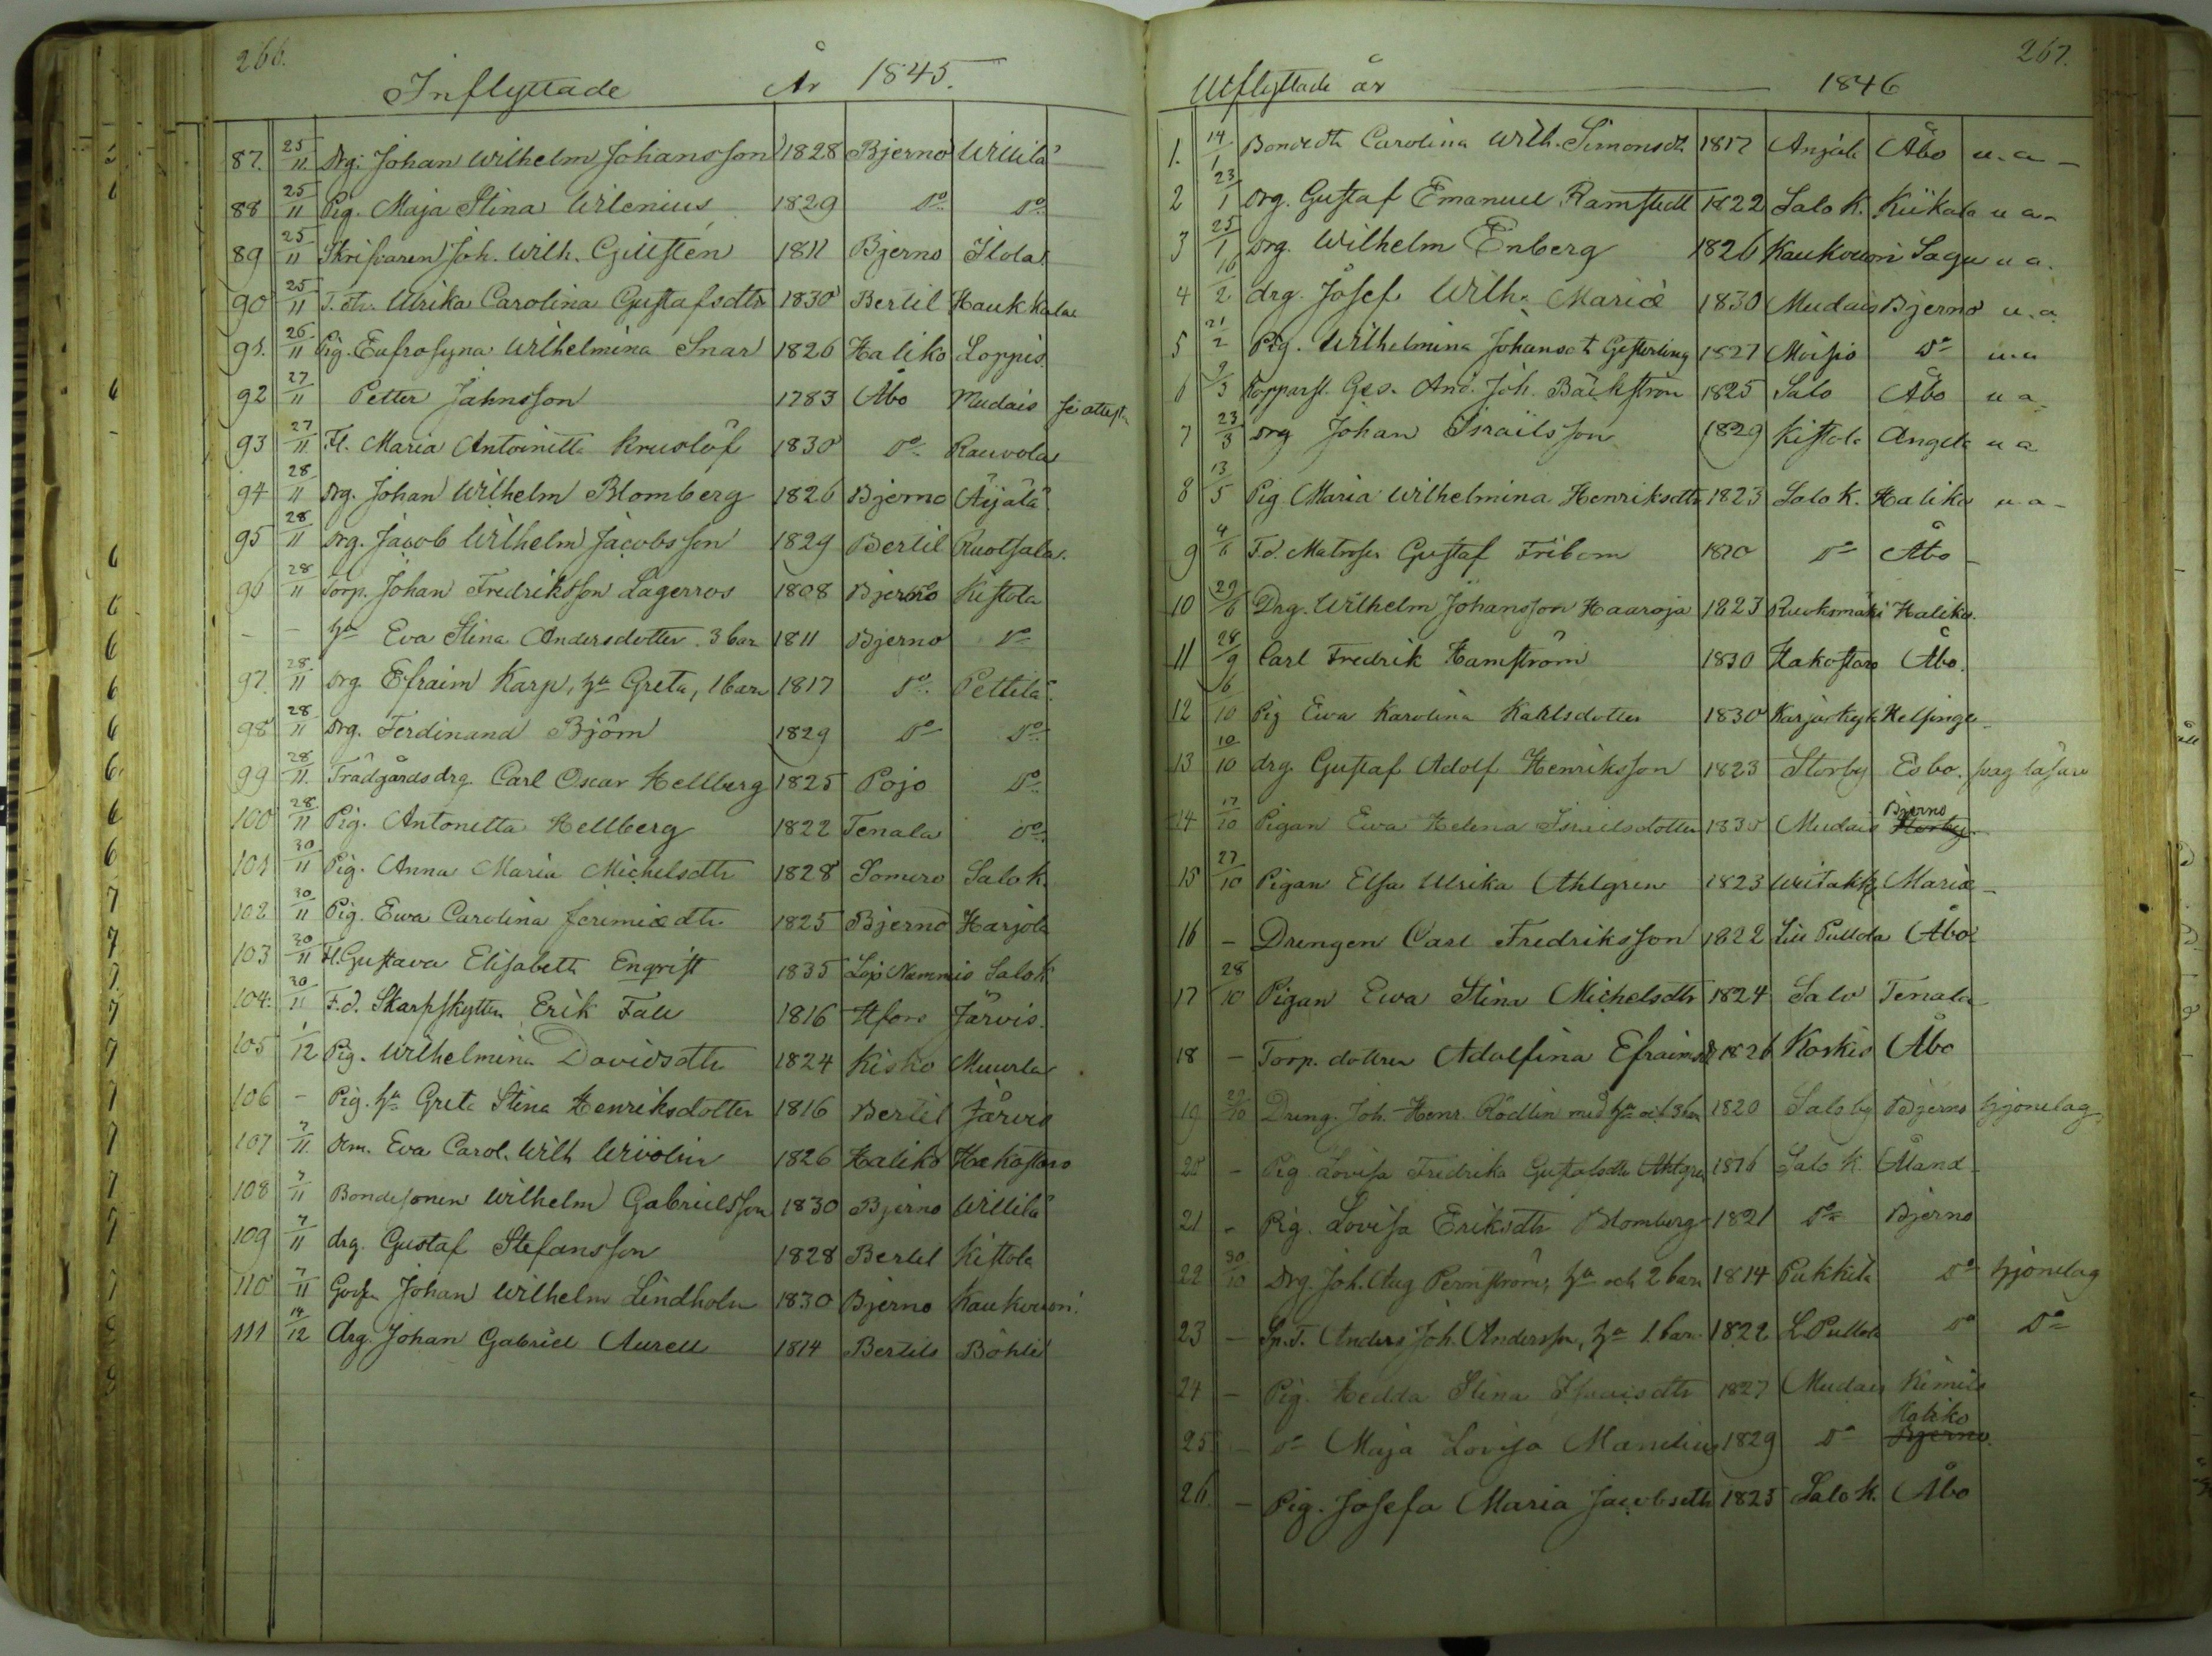 266.
Inflyttade År 1845.
87. 25/11 Drg. Johan Wilhelm Johansson 1828 Bjerno Willila
88 25/11 Pig. Maja Stina Wilenius 1829 Do Do
89 25/11 Skrifvaren Joh. Wilh. Gillsten 1811 Bjerno Ilola
90 25/11 Ulrika Carolina Gustafsdtr 1830 Bertil Haukkala
91. 26/11 Pig. Eufrosyna Wilhelmina Snar 1826 Haliko Loppis
92 27/11 Petter Jahnsson 1783 Åbo Mudais se attest
93 27/11 Fl. Maria Antoinetta Kruslöf 1830 Do Rauvola
94 28/11 Drg. Johan Wilhelm Blomberg 1826 Bjerno Äijälä
95 28/11 Drg. Jacob Wilhelm Jacobsson 1829 Bertil Ruotsala
96 28/11 Torp. Johan Fredriksson Lagerros 1808 Bjerno Kistola
– – hu Eva Stina Andersdotter 3 bar 1811 Bjerno Do
97. 28/11 Drg. Efraim Karp, hu Greta, 1 barn 1817 Do Pettilä
98 28/11 Drg. Ferdinand Björn 1829 Do Do
99 28/11 Trädgårdsdrg Carl Oscar Hellberg 1825 Pojo Do
100 28/11 Pig. Antonetta Hellberg 1822 Tenala Do
101 30/11 Pig. Anna Maria Michelsdtr 1828 Somero Salo K.
102 30/11 Pig. Ewa Carolina Jeremiædtr 1825 Bjerno Harjola
103 30/11 Fl. Gustava Elisabeth Engvist 1835 Lojo Nummis Salo K
104. 30/11 F.d. Skarpskytten Erik Fall 1816 Hfors Järvis.
105 1/12 Pig. Wilhelmina Davidsdtr 1824 Kisko Muurla
106 – Pig. hu Greta Stina Henriksdotter 1816 Bertil Järvis
107 7/11 Dem. Eva Carol. Wilh 1826 Haliko Hakostaro
108 7/11 Bondesonen Wilhelm Gabrielsson 1830 Bjerno Willilä
109 7/11 drg. Gustaf Stefansson 1828 Bertil Kistola
110 7/11 Johan Wilhelm Lindholm 1830 Bjerno Kaukvuori
111 14/12 drg. Johan Gabriel Aurell 1814 Bertils Böhle
267.
Utflyttade år 1846
1. 14/1 Bondedtr Carolina Wilh. Simonsdtr 1817 Anjala Åbo u.a –
2 23/1 Drg. Gustaf Emanuel Ramstedt 1822 Salo K. Kiikala u a
3 25/1 Drg. Wilhelm Enberg 1826 Kaukvuori Sagu u a.
4 16/2 drg. Josef Wilh. Mariæ 1830 Mudais Bjerno u.a
5 21/2 Pig. Wilhelmina Johansdt Gesterling 1827 Moisio Do u.a
6 9/3 Kopparsl. Ges. And. Joh. Bäckström 1825 Salo Åbo u a
7 23/3 Drg Johan Israilsson 1829 Kistola Angela u a
8 13/5 Pig. Maria Wilhelmina Henriksdtr 1823 Salo K. Haliko u.a –
9 4/6 F.d. Matrosen Gustaf Fribom 1820 Do Åbo –
10 29/6 Drg. Wilhelm Johansson Haaroja 1823 Ruoksmäki Haliko.
11 28/9 Carl Fredrik Hamström 1830 Hakostaro Åbo.
12 6/10 Pig Ewa Karolina Kahlsdotter 1830 Karjaskylä Helsinge –
13 10/10 drg. Gustaf Adolf Henriksson 1823 Storby Esbo. svag läsare
14 17/10 Pigan Ewa Helena Israelsdotter 1830 Mudais Bjerno Storby
15 27/10 Pigan Elsa Ulrika Ahlgren 1823 Uitakky Mariæ –
16 – Drengen Carl Fredriksson 1822 Lill Pullola Åbo
17 28/10 Pigan Ewa Stina Michelsdtr 1824 Salo Tenala
18 – Torp. dottren Adolfina Efraimsd 1826 Koskis Åbo
19 29/10 Dreng. Joh. Henr. Rödlin med hu och 3 bar 1820 Saloby Bjerno hjonelag
20 – Pig. Lovisa Fredrika Gustafsdtr Ahlgren 1816 Salo K. Åland
21 – Pig. Lovisa Eriksdtr Blomberg 1821 Do Bjerno
22 30/10 Drg. Joh. Aug Pernström, hu och 2 barn 1814 Pukkila Do hjonelag
23 – Sp. T. Anders Joh. Andersson, hu 1. bar. 1822 L. Pullola Do Do
24 – Pig. Hedda Stina Isaacsdtr 1827 Mudais Kimito
25 – Do Maja Lovisa Mandelius 1829 Do Haliko Bjerno
26 – Pig. Josefa Maria Jacobsdtr 1825 Salo K. Åbo